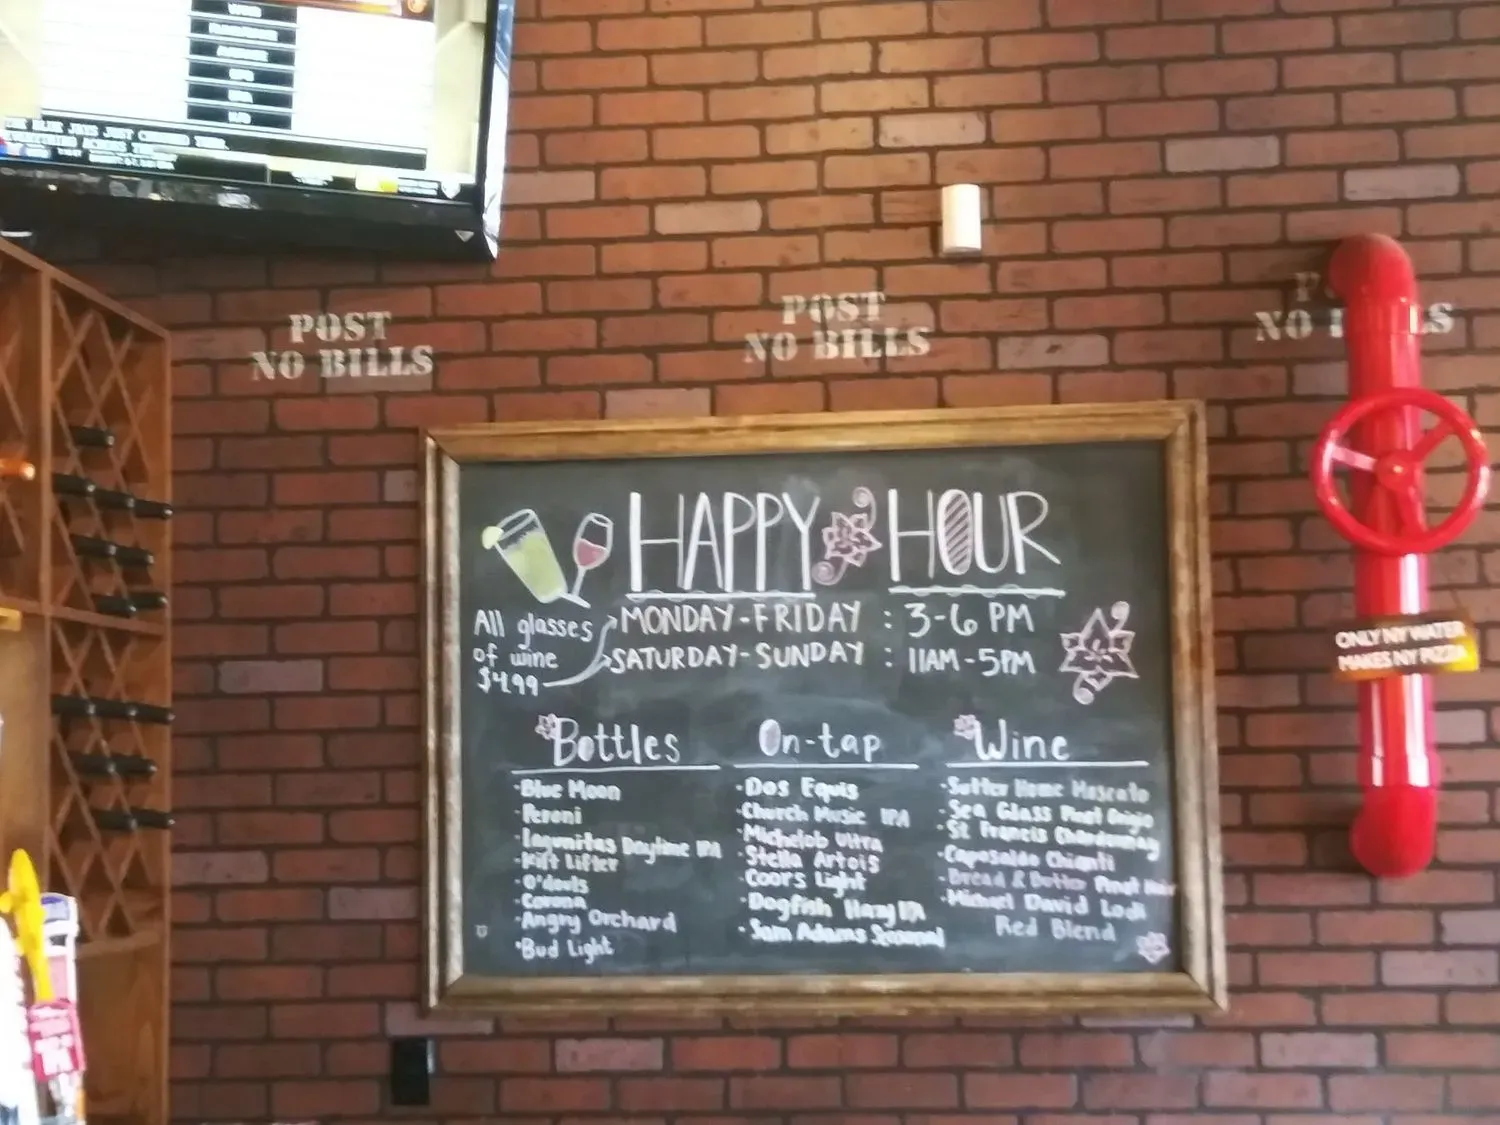 THE BLUE JAYS JUST CHANGED THEIR
POST
NO BILLS
POST
NO BILLS
NO BILLS
HAPPY HOUR
All glasses
of wine
$4.99
MONDAY-FRIDAY : 3-6 PM
SATURDAY-SUNDAY : 11AM-5PM
Bottles
·Blue Moon
·Peroni
·Lagunitas Daytime IPA
·Kilt Lifter
·O'douls
·Corona
·Angry Orchard
·Bud Light
On-tap
·Dos Equis
·Church Music IPA
·Michelob Ultra
·Stella Artois
·Coors Light
·Dogfish Hazy IPA
·Sam Adams Seasonal
Wine
·Sutter Home Moscato
·Sea Glass Pinot Grigio
·St Francis Chardonnay
·Caposaldo Chianti
·Bread & Butter Pinot Noir
·Michael David Lodi
Red Blend
ONLY NY WATER
MAKES NY PIZZA